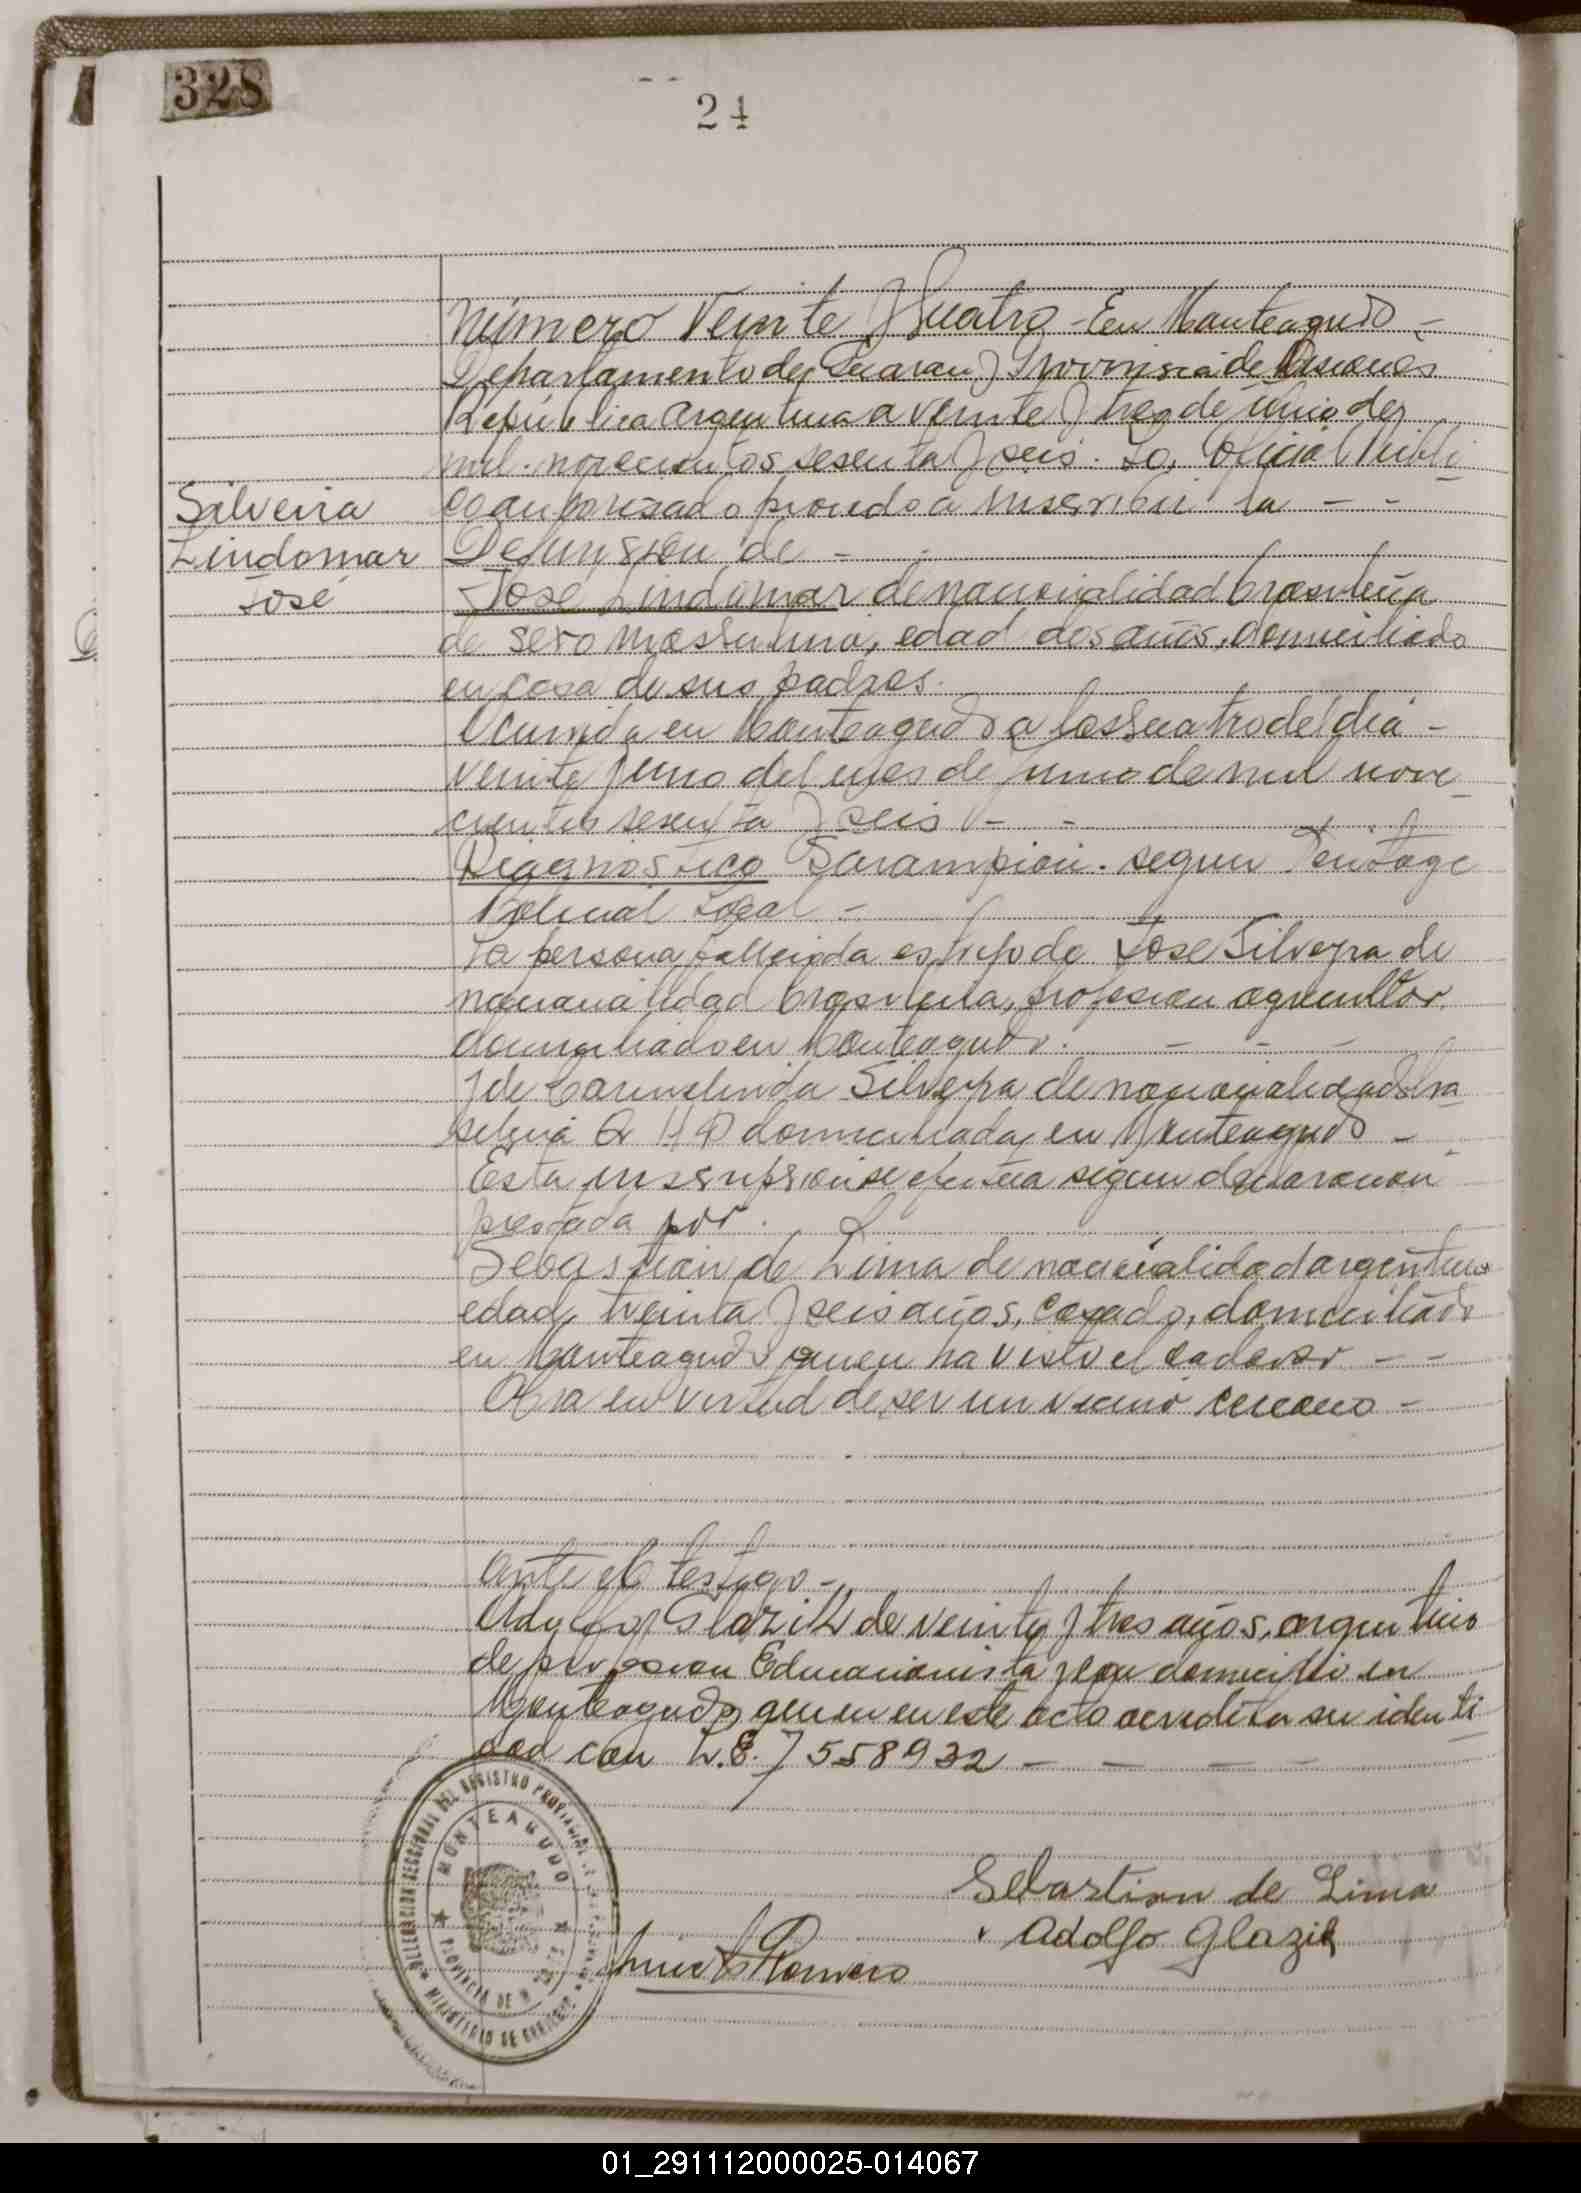 328
24
Número Veinte y Cuatro - En Monteagudo -
Departamento de Guarani Provinsia de Misiones
República Argentina a veinte y tres de junio de
mil novecientos sesenta y seis. Yo, Oficial Públi
co autorizado prosedo a inscribir la - -
Silveira
Lindomar
José
Defunsión de -
Jose Lindomar de nacionalidad brasileña
de sexo massulino, edad dos años, domiciliado
en casa de sus padres.
Ocurrida en Monteagudo a las cuatro del dia -
veinte y uno del mes de junio de mil nove
cientos sesenta y seis - -
Diagnostico Sarampión. segun
Policial Local -
La persona fallecida es hijo de Jose Silveyra de
nacionalidad brasileña, profesion agricultor,
domiciliado en Monteagudo. - - -
y de Silveyra de nacionalidad bra
sileña Q H D domiciliada en Monteagudo -
Esta inscripsion se efectua segun declaracion
prestada por.
Sebastian de Lima de nacionalidad argentina
edad, treinta y seis años, casado, domiciliado
en Monteagudo quien ha visto el cadaver - -
Obra en virtud de ser un vecino cercano -
Ante el testigo -
Adolfo Glazik de veinte y tres años, argentino
de profesion Educacionista y con domicilio en
Monteagudo, quien en este acto acredita su identi
dad con L.E. 7558932 - - - -
DELEGACION SECCIONAL DEL REGISTRO PROVINCIAL DE LAS PERSONAS
MONTEAGUDO
PROVINCIA DE MISIONES
MINISTERIO DE GOBIERNO
Sebastian de Lima
Adolfo Glazik
Romero
01_291112000025-014067